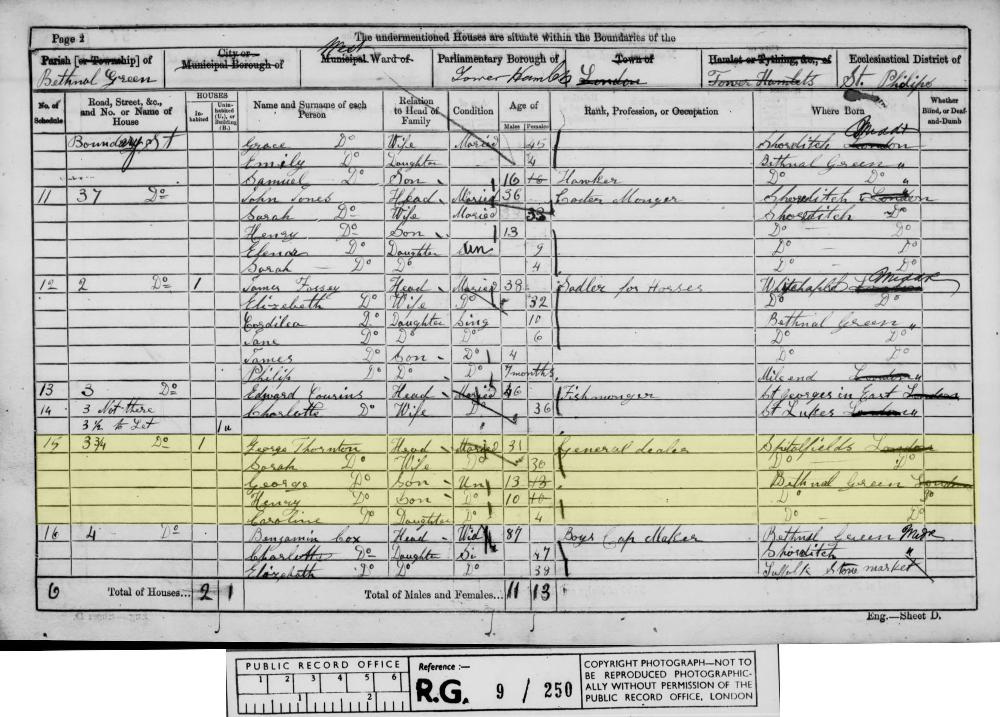 Page 2
The undermentioned Houses are situate within the Boundaries of the
Parish [or Township] of Bethnal Green
City or Municipal Borough of
Municipal Ward of
Parliamentary Borough of Tower Hamlets
Town of London
Hamlet or Tything, &c., of Tower Hamlets
Ecclesiastical District of St Philips
No. of Schedule
Road, Street, &c., and No. or Name of House
HOUSES
Inhabited
Uninhabited (U.), or Building (B.)
Name and Surname of each Person
Relation to Head of Family
Condition
Age of
Males
Females
Rank, Profession, or Occupation
Where Born
Whether Blind, or Deaf-and-Dumb
Boundary St Grace Do Wife Maried 45 Shorditch London Middx
Emily Do Daughter 4 Bethnal Green "
Samuel Do Son 16 Hawker Do Do "
11 37 Do John Jones Head Maried 36 Coster Monger Shoreditch London
Sarah Do Wife Maried 33 Shoerditch Do
Henry Do Son 13 Do Do
Elenor Do Daughter Un 9 Do Do
Sarah Do 4 Do Do
12 2 Do 1 James Fossey Head Maried 38 Sadler for Horses Whitchaple London Middx
Elizebeth Do Wife Do 32 Do Do
Cordilea Do Daughter Sing 10 Bethnal Green "
Jane Do Do Do 6 Do Do
James Do Son Do 4 Do Do
Philip Do Do Do 7 months Mile end London "
13 3 Do Edward Cousins Head Maried 46 Fishmonger St Georges in East London
14 3 Not there Charlotte Do Wife Do 36 St Lukes London "
3 ½ to Let 1u
15 3 ¾ Do 1 George Thornton Head Maried 31 General dealer Spitolfields London
Sarah Do Wife Do 30 Do Do
George Do Son Un 13 13 Bethnal Green London
Henry Do Son Do 10 10 Do Do
Caroline Do Daughter Do 4 Do Do
16 4 Do Benjamin Cox Head Wid 87 Boys Cap Maker Bethnal Green Midx
Charlotte Do Daughter Si 47 Shorditch "
Elizebath Do Do Do 39 Suffolk Stow market
6 Total of Houses... 2 1 Total of Males and Females... 11 13
Eng.—Sheet D.
PUBLIC RECORD OFFICE
1 2 3 4 5 6
1 2
Reference :—
R.G. 9 / 250
COPYRIGHT PHOTOGRAPH—NOT TO
BE REPRODUCED PHOTOGRAPHIC-
ALLY WITHOUT PERMISSION OF THE
PUBLIC RECORD OFFICE, LONDON